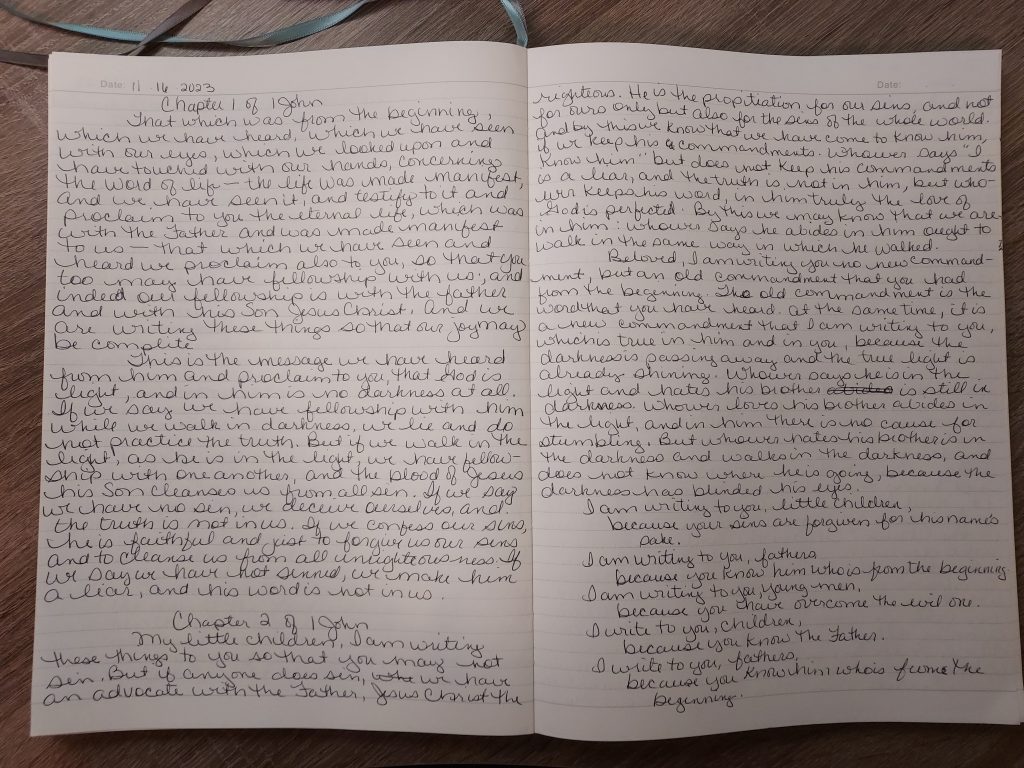 Date: 11 16 2023
Chapter 1 of 1 John
That which was from the beginning,
which we have heard, which we have seen
with our eyes, which we looked upon and
have touched with our hands, concerning
the word of life — the life was made manifest,
and we have seen it, and testify to it and
proclaim to you the eternal life, which was
with the Father and was made manifest
to us — that which we have seen and
heard we proclaim also to you, so that you
too may have fellowship with us; and
indeed our fellowship is with the father
and with his Son Jesus Christ. And we
are writing these things so that our joy may
be complete.
This is the message we have heard
from him and proclaim to you, that God is
light, and in him is no darkness at all.
If we say we have fellowship with him
while we walk in darkness, we lie and do
not practice the truth. But if we walk in the
light, as he is in the light, we have fellow-
ship with one another, and the blood of Jesus
his Son cleanses us from all sin. If we say
we have no sin, we deceive ourselves, and
the truth is not in us. If we confess our sins,
he is faithful and just to forgive us our sins
and to cleanse us from all unrighteousness. If
we say we have not sinned, we make him
a liar, and his word is not in us.
Chapter 2 of 1 John
My little children, I am writing
these things to you so that you may not
sin. But if anyone does sin, we have
an advocate with the Father, Jesus Christ the
Date:
righteous. He is the propitiation for our sins, and not
for ours only but also for the sins of the whole world.
And by this we know that we have come to know him,
if we keep his commandments. Whoever says "I
know him" but does not keep his commandments
is a liar, and the truth is not in him, but who-
ever keeps his word, in him truly the love of
God is perfected. By this we may know that we are
in him: whoever says he abides in him ought to
walk in the same way in which he walked.
Beloved, I am writing you no new command-
ment, but an old commandment that you had
from the beginning. The old commandment is the
word that you have heard. At the same time, it is
a new commandment that I am writing to you,
which is true in him and in you, because the
darkness is passing away and the true light is
already shining. Whoever says he is in the
light and hates his brother abides is still in
darkness. Whoever loves his brother abides in
the light, and in him there is no cause for
stumbling. But whoever hates his brother is in
the darkness and walks in the darkness, and
does not know where he is going, because the
darkness has blinded his eyes.
I am writing to you, little children,
because your sins are forgiven for his name's
sake.
I am writing to you, fathers
because you know him who is from the beginning.
I am writing to you young men,
because you have overcome the evil one.
I write to you, children,
because you know the Father.
I write to you, fathers,
because you know him who is from the
beginning.